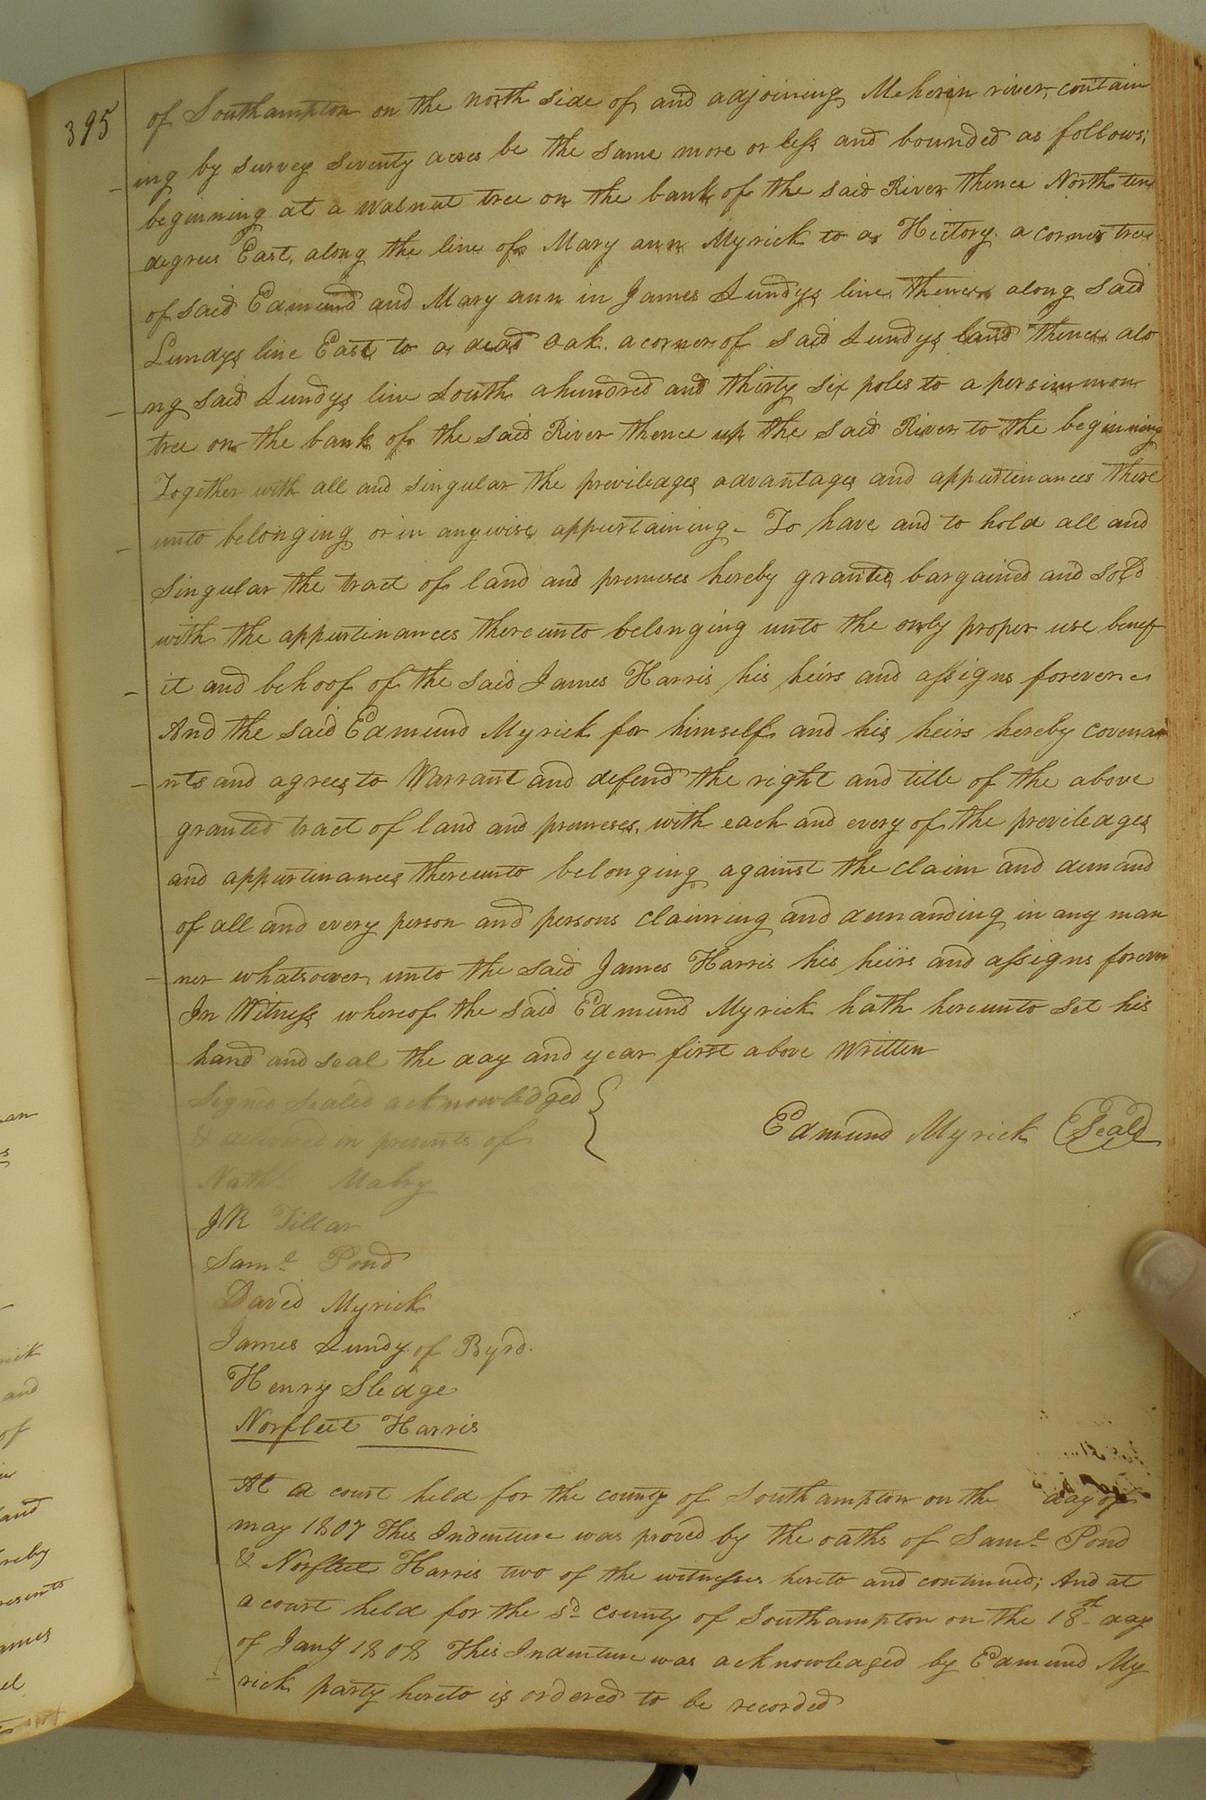 395
of Southampton on the north side of and adjoining Meherin river, contain
ing by survey seventy acres be the same more or less and bounded as follows;
beginning at a walnut tree on the bank of the said River thence North ten
degrees East, along the line of Mary ann Myrick to a Hictory a corner tree
of said Edmund and Mary ann in James Lundys line, thence along said
Lundys line East to a dead oak a corner of said Lundys land thence alo
ng said Lundys line South a hundred and thirty six poles to a persimmon
tree on the bank of the said River thence up the said River to the beginning
Together with all and singular the priviledges advantages and appurtinances there
unto belonging or in anywise appurtaining - To have and to hold all and
singular the tract of land and premises hereby granted bargained and sold
with the appurtinances thereunto belonging unto the only proper use benef
it and behoof of the said James Harris his heirs and assigns forever
And the said Edmund Myrick for himself and his heirs hereby covena
nts and agrees to Warrant and defend the right and title of the above
granted tract of land and premises, with each and every of the previledges
and appurtinances thereunto belonging against the claim and demand
of all and every person and persons claiming and demanding in any man
ner whatsoever unto the said James Harris his heirs and assigns forever
In Witness whereof the said Edmund Myrick hath hereunto set his
hand and seal the day and year first above Written
Signed Sealed acknowledged
& delivered in presents of
Edmund Myrick Seald
Nathl Mabry
JR Tillar
Saml Pond
David Myrick
James Lundy of Byrd.
Henry Sledge
Norfleet Harris
At a court held for the county of Southampton on the day of
may 1807 This Indenture was proved by the oaths of Saml Pond
& Norfleet Harris two of the witnesses hereto and continued; And at
a court held for the sd county of Southampton on the 18th day
of Jany 1808 This Indenture was acknowledged by Edmund My
rick party hereto is ordered to be recorded